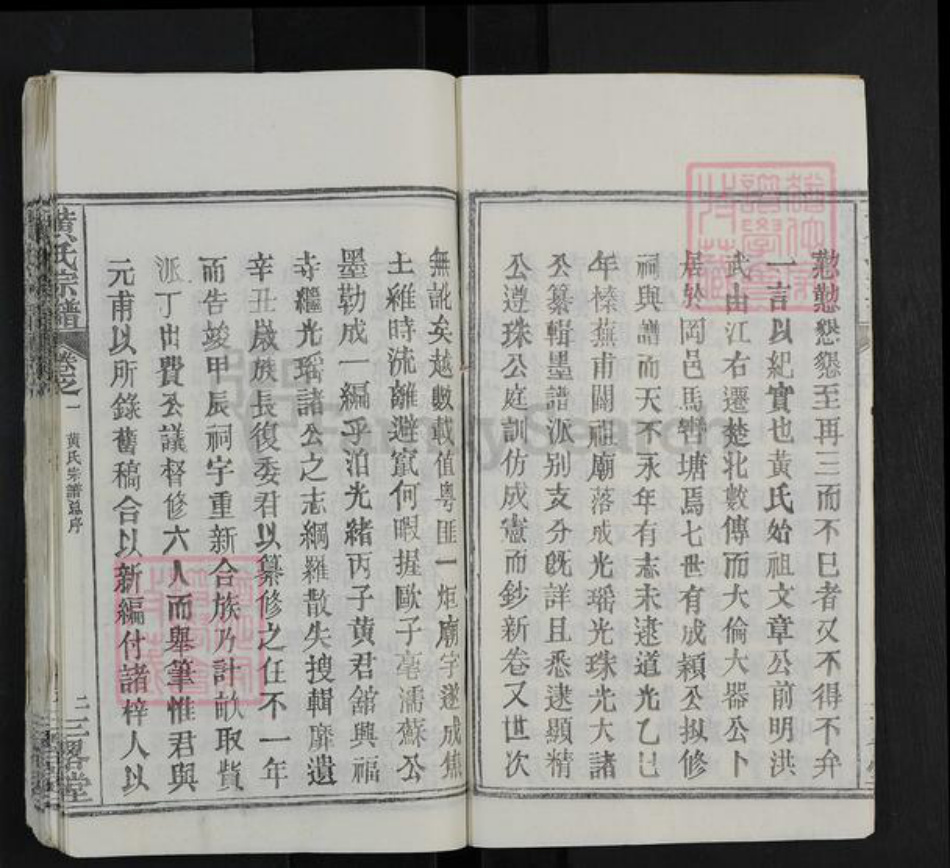 懃懃懇懇至再三而不巳者又不得不弁
一言以紀實也黃氏始祖文章公前明洪
武由江右遷楚北數傳而大倫大器公卜
居於岡邑馬轡塘焉七世有成穎公拟修
祠與譜而天不永年有志未逮道光乙巳
年榛蕪甫闢祖廟落成光璠光珠光大諸
公纂輯墨譜派别支分旣詳且悉逮顯精
公遵珠公庭訓仿成憲而鈔新卷又世次
無訛矣越數載值粵匪一炬廟宇遂成焦
土維時流離避竄何暇握歐子毫濡蘇公
墨勒成一編乎洎光緒丙子黃君舘興福
寺繼光璠諸公之志網羅散失搜輯靡遺
辛丑歲族長復委君以纂修之任不一年
而告竣甲辰祠宇重新合族乃計畝取貲
派丁出費公議督修六人而舉筆惟君與
元甫以所錄舊稿合以新編付諸梓人以
黃氏宗譜 卷之一 黃氏宗譜總序 二 三畧堂
FamilySearch